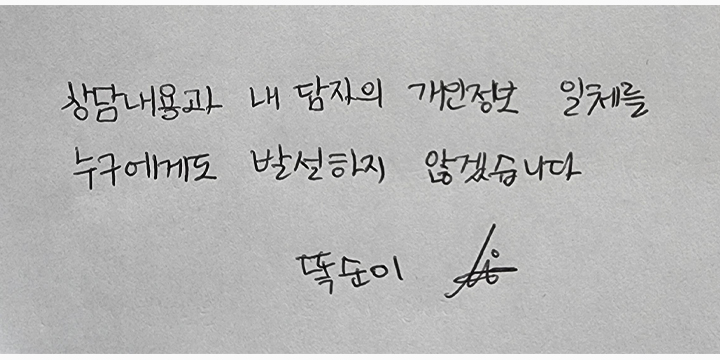 상담내용과 내담자의 개인정보 일체를
누구에게도 발설하지 않겠습니다
똑순이